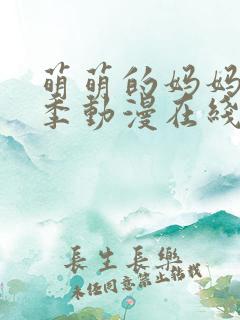 萌萌的妈妈
季動漫在綫
長生長樂
未经同意禁止转载